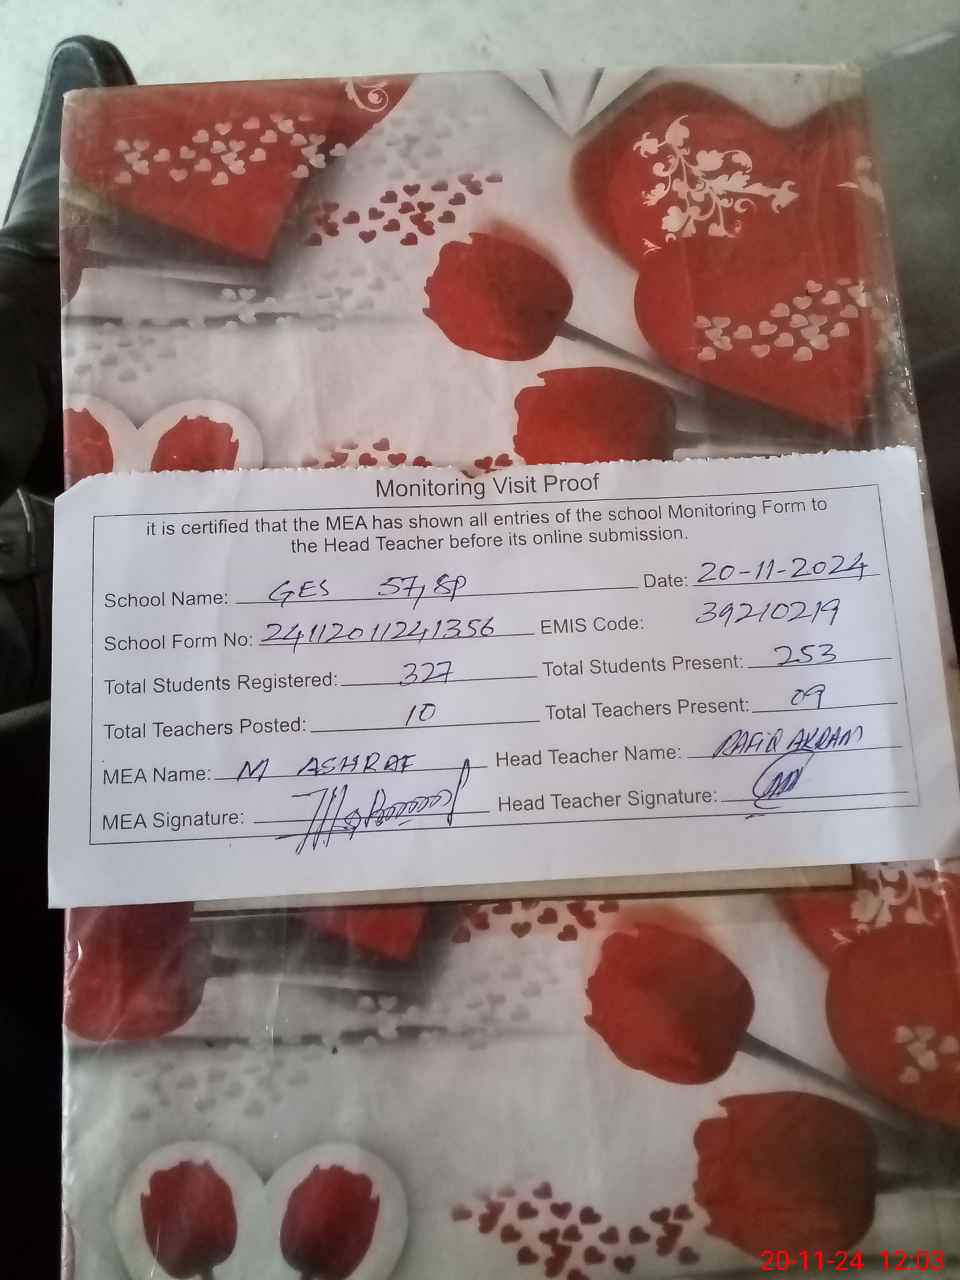 Monitoring Visit Proof
it is certified that the MEA has shown all entries of the school Monitoring Form to
the Head Teacher before its online submission.
School Name: GES 57, SP Date: 20-11-2024
School Form No: 24112011241356 EMIS Code: 39210219
Total Students Registered: 327 Total Students Present: 253
Total Teachers Posted: 10 Total Teachers Present: 09
MEA Name: M ASHRAF Head Teacher Name: RAFIQ AKRAM
MEA Signature: Head Teacher Signature:
20-11-24 12:03